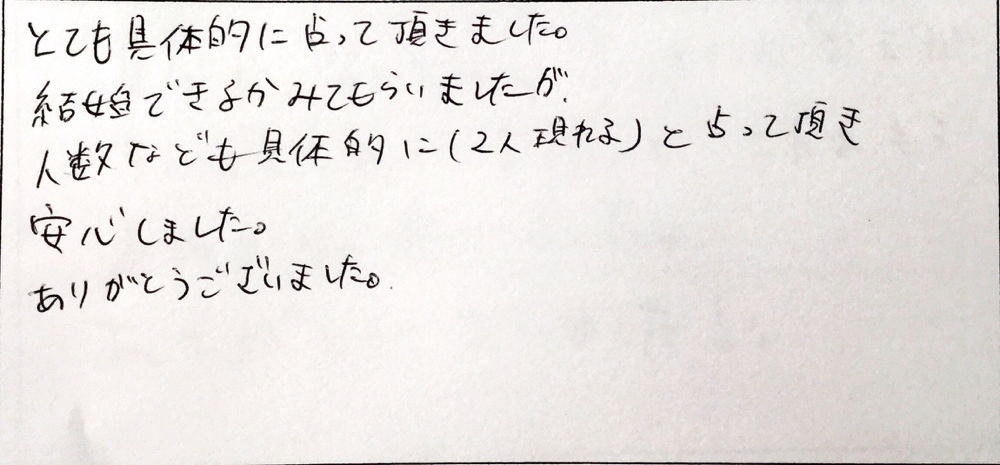 とても具体的に占って頂きました。
結婚できるかみてもらいましたが、
人数なども具体的に(2人現れる)と占って頂き
安心しました。
ありがとうございました。